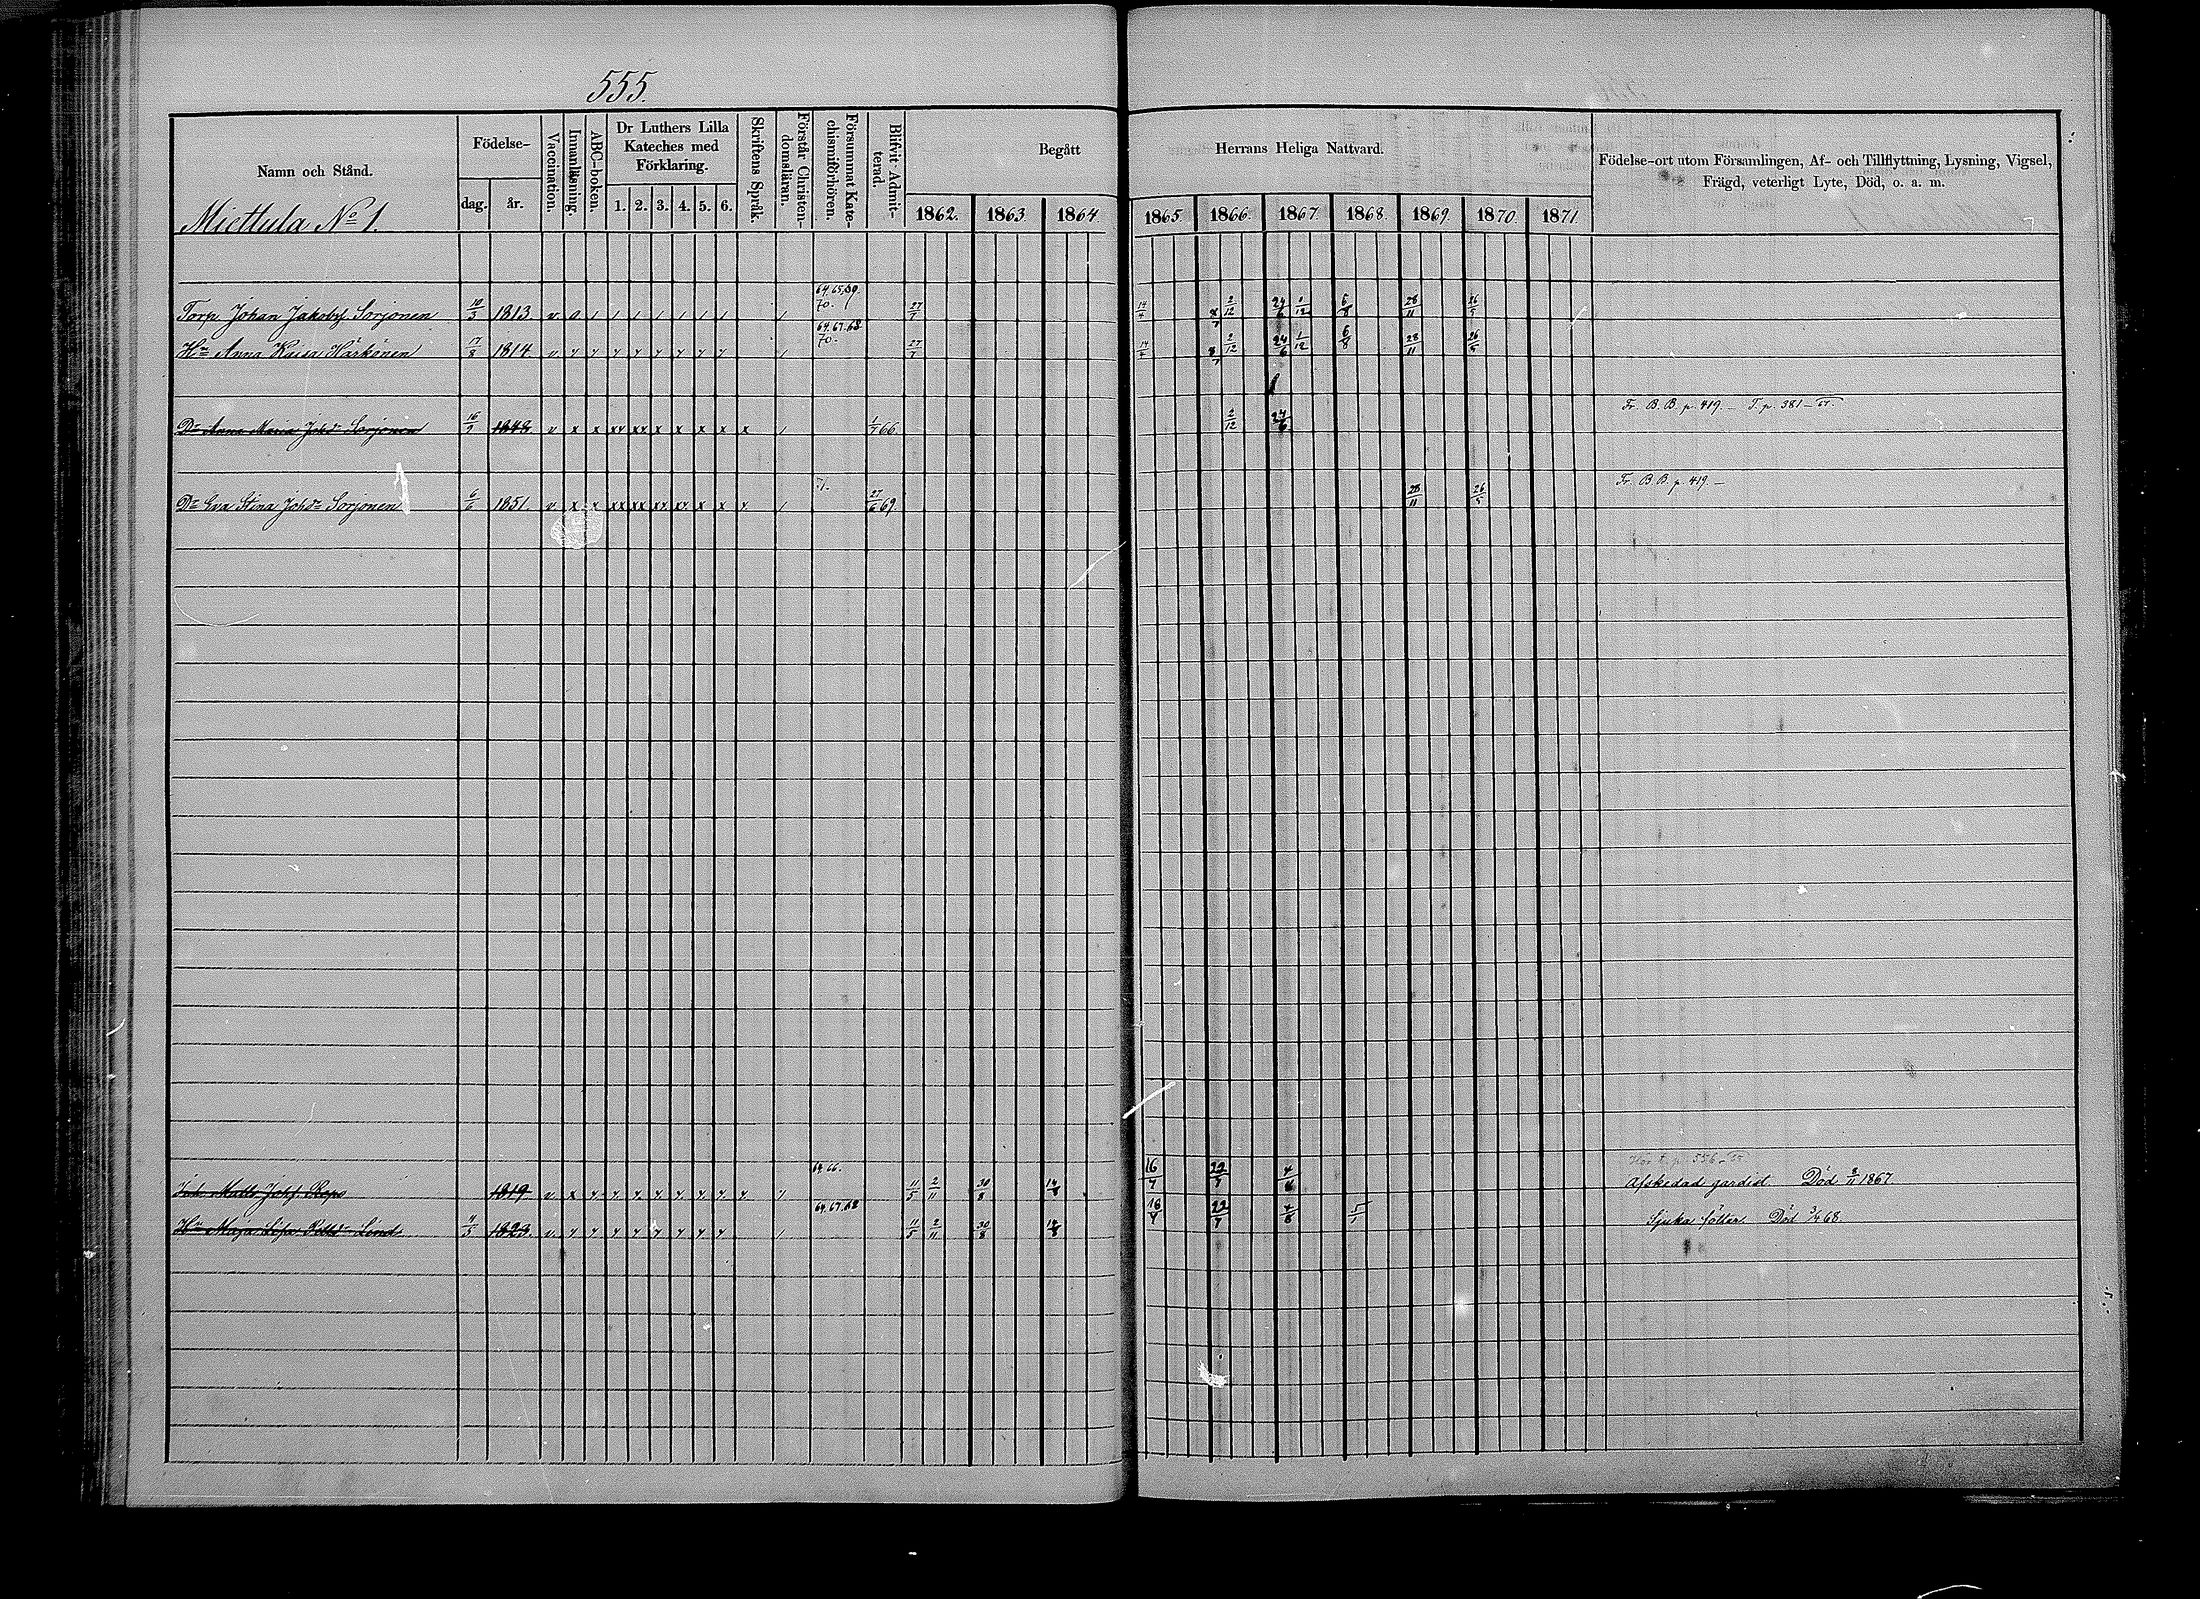 555.
Namn och Stånd.
Födelse-
dag. år.
Vaccination.
Innanläsning.
ABC-boken.
Dr Luthers Lilla Kateches med Förklaring.
1. 2. 3. 4. 5. 6.
Skriftens Språk.
Förstår Christen-domsläran.
Försummat Kate-chismiförhören.
Blifvit Admit-terad.
Begått Herrans Heliga Nattvard.
1862. 1863 1864 1865 1866. 1867. 1868. 1869. 1870 1871
Födelse-ort utom Församlingen, Af- och Tillflyttning, Lysning, Vigsel,
Frägd, veterligt Lyte, Död, o. a. m.
Miettula No 1.
64.65.69.
70.
Torp. Johan Jakobss. Sorjonen 10/3 1813 v a / / / / / / / / 27/7 14/4 8/7 2/12 24/6 1/12 6/8 28/11 26/5
64.67.68
70.
Hu Anna Kaisa Härkönen 17/8 1814 v y y y y y y y y / 27/7 14/4 8/7 2/12 24/6 1/12 6/8 28/11 26/5
Fr. B. B. p. 419. — T. p. 381
Dr Anna Maria Johdr Sorjonen 16/9 1848 v x x xy xx x x x x x / 1/7 66. 2/12 24/6
71.
Fr. B B p. 419 —
Dr Eva Stina Johdr Sorjonen 6/6 1851. v x x xx xx xy xy x x y / 27/6 69. 28/11 26/5
64.66.
p. 556
Matts Johss. 1819 v x y y y y y y y y 11/5 2/11 30/8 14/8 16/7 22/7 4/8 Afskedad gardist. Död 8/11 1867.
64.67.68
Hu Maja Lisa Lind 4/3 1823. v y y y y y y y y / 11/5 2/11 30/8 14/8 16/7 22/7 4/8 5/1 Sjuka fötter. Död 3/4 68.